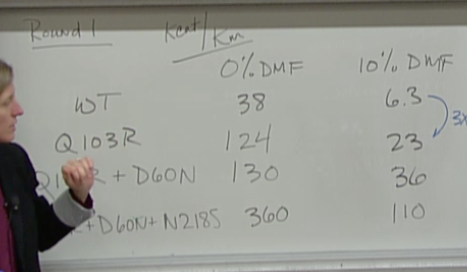 Round 1 Kcat/Km
0% DMF 10% DMF
WT 38 6.3
3x
Q103R 124 23
+ D60N 130 36
+ D60N + N218S 360 110